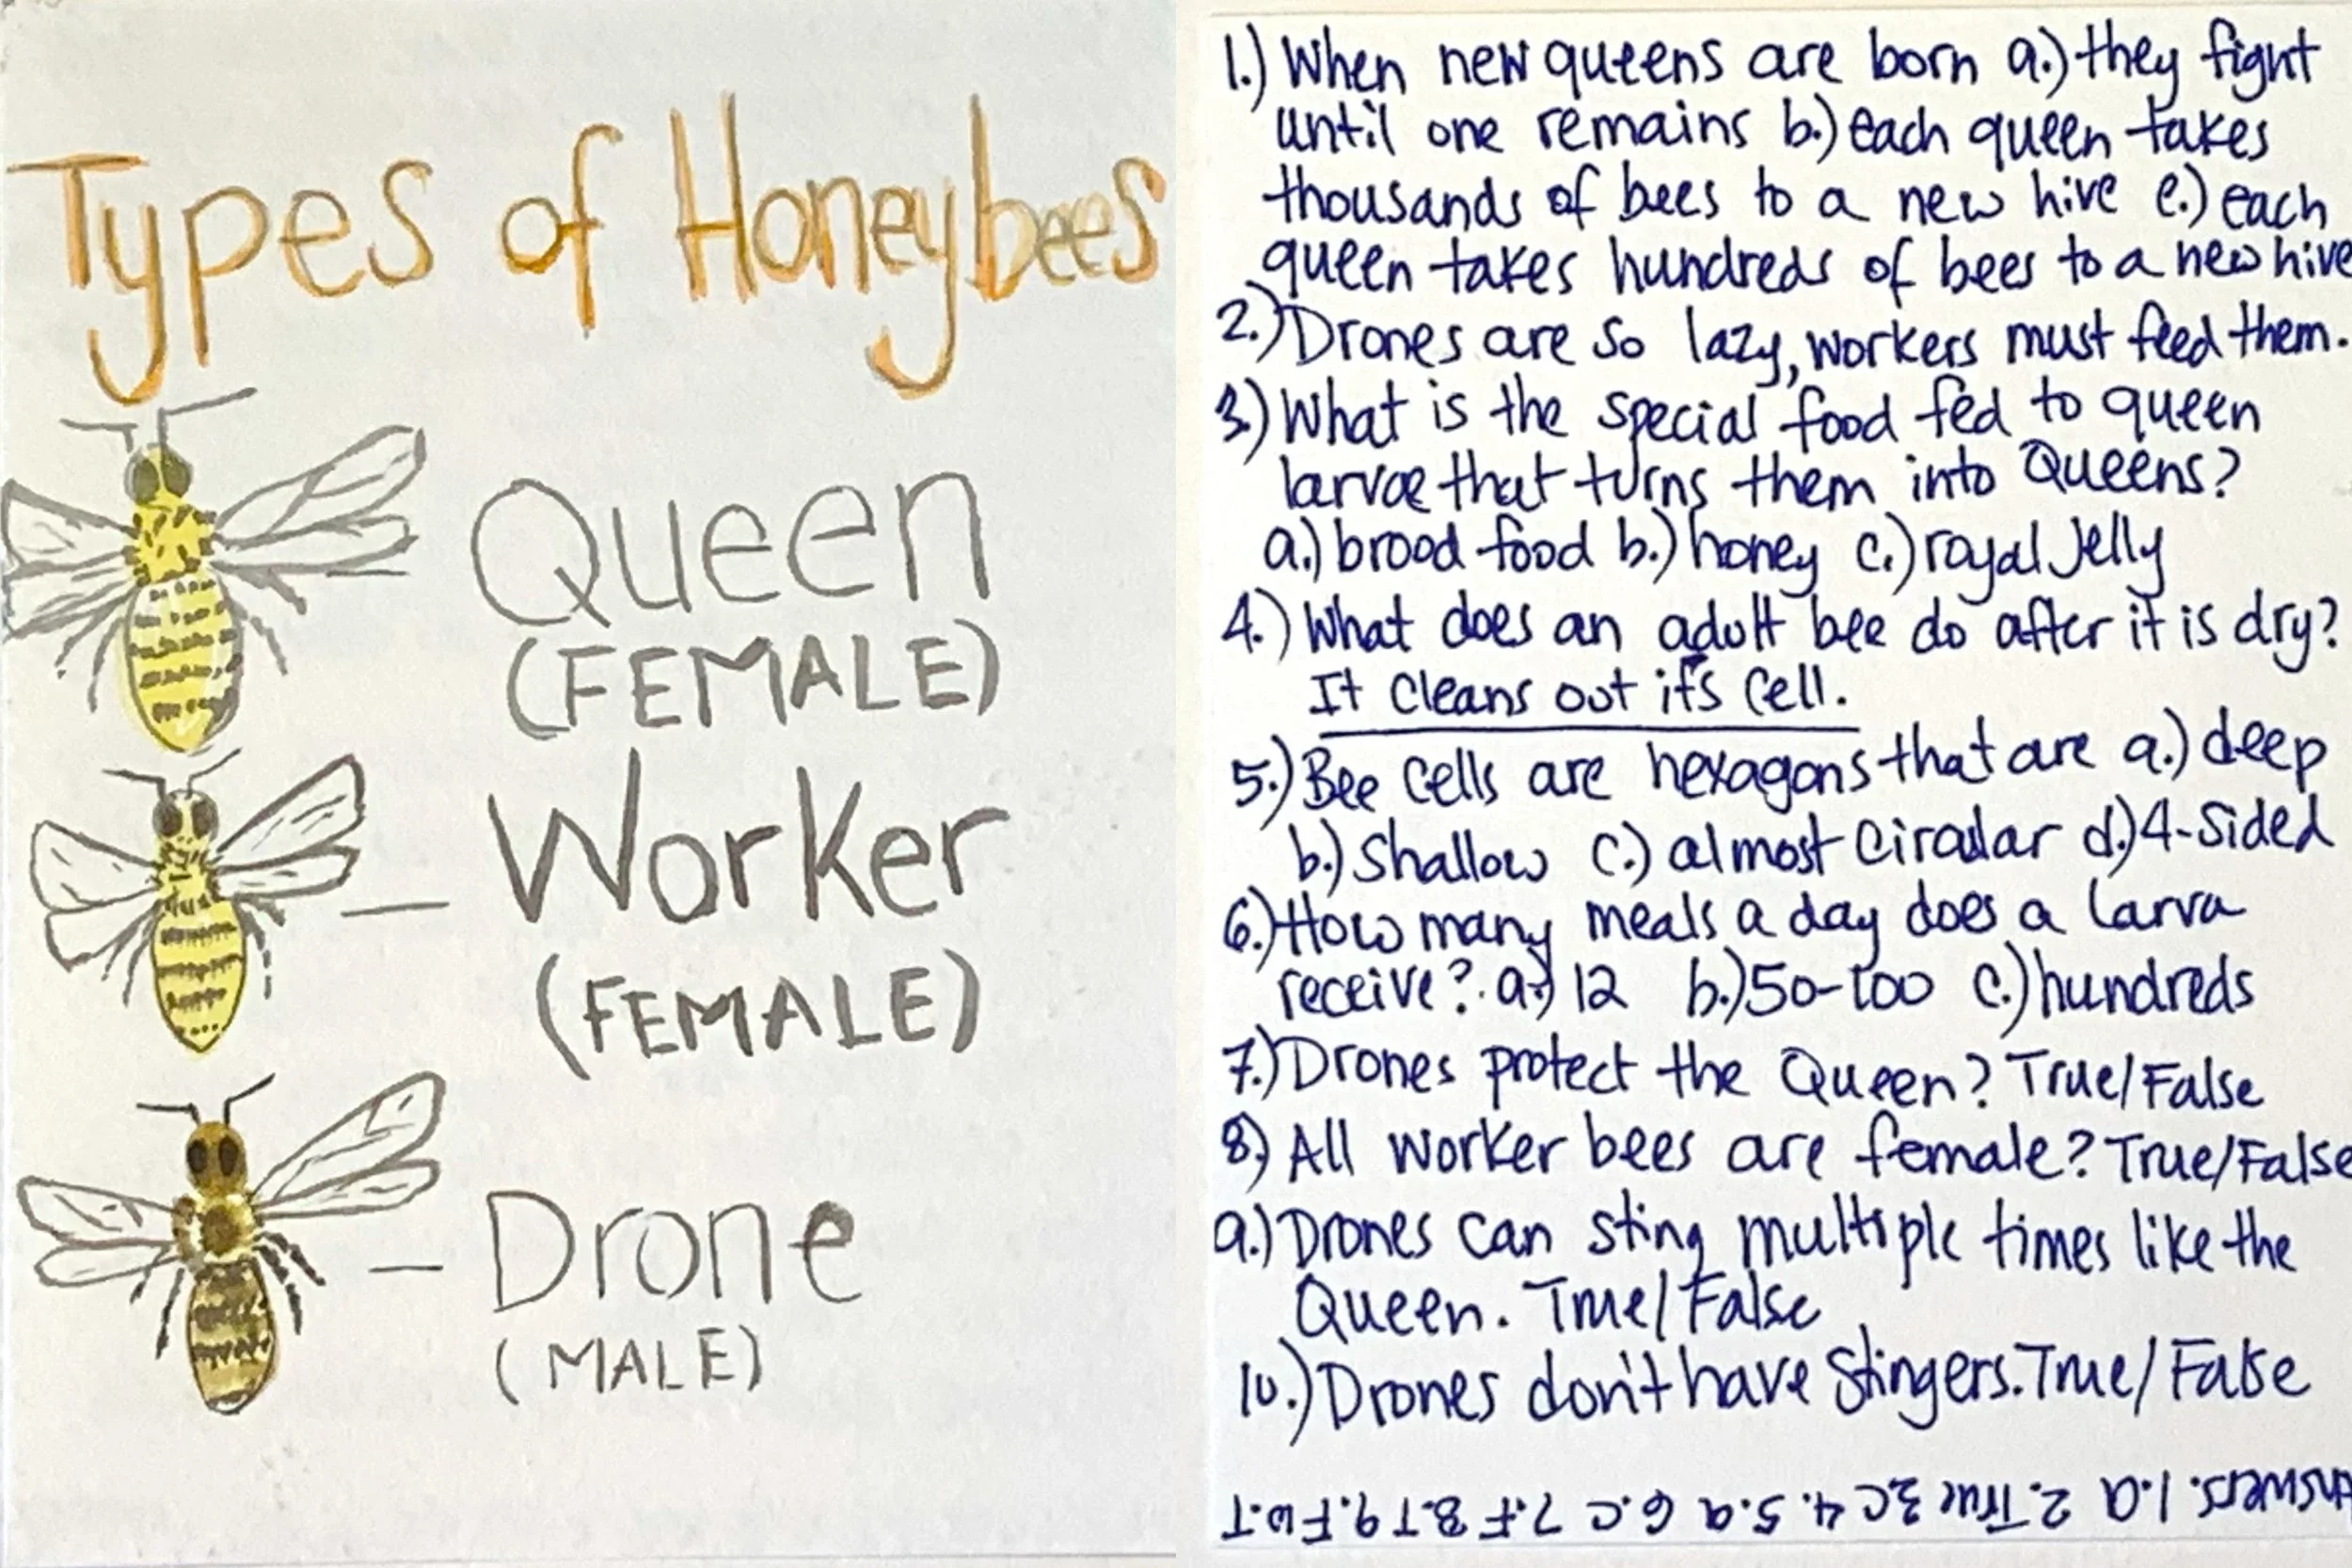 Types of Honeybees
Queen
(FEMALE)
Worker
(FEMALE)
Drone
(MALE)
1.) When new queens are born a.) they fight
until one remains b.) each queen takes
thousands of bees to a new hive c.) each
queen takes hundreds of bees to a new hive
2.) Drones are so lazy, workers must feed them.
3.) What is the special food fed to queen
larvae that turns them into Queens?
a.) brood food b.) honey c.) royal Jelly
4.) What does an adult bee do after it is dry?
It cleans out it's cell.
5.) Bee cells are hexagons that are a.) deep
b.) shallow c.) almost circular d.) 4-sided
6.) How many meals a day does a larva
receive? a.) 12 b.) 50-100 c.) hundreds
7.) Drones protect the Queen? True/False
8.) All worker bees are female? True/False
9.) Drones can sting multiple times like the
Queen. True/False
10.) Drones don't have Stingers. True/False
Answers. 1.a 2.True 3.C 4. 5.a 6.C 7.F 8.T 9.F 10.T